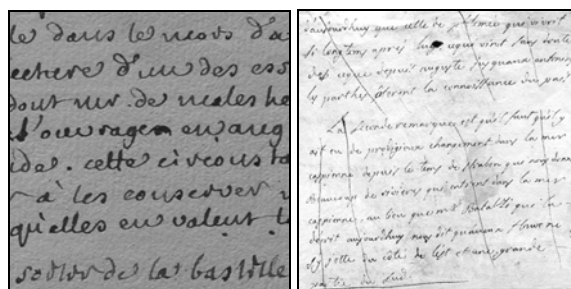 le dans le mois d'a
lecture d'un des ess
dont mr. de males he
l'ouvragem en ang
ide. cette circonsta
r à les conserver
qu'elles en valent l
de la bastille
d'aujourdhuy que celle de qui vivoit
si longtems après luy, ce qui vient sans doute
des que depuis auguste jusqu'aux
les parthes oterent la connoissance du pais
La seconde remarque est qu'il faut qu'il y
ait eu de prodigieux changement dans la mer
caspienne depuis le tems de Strabon que nous donne
beaucoup de rivieres qui entrent dans la mer
caspienne, au lieu que mr. que la
decrit aujourdhuy nous dit qu'aucun fleuve ne
s'y jette du coté de l'est et une grande
partie du sud.